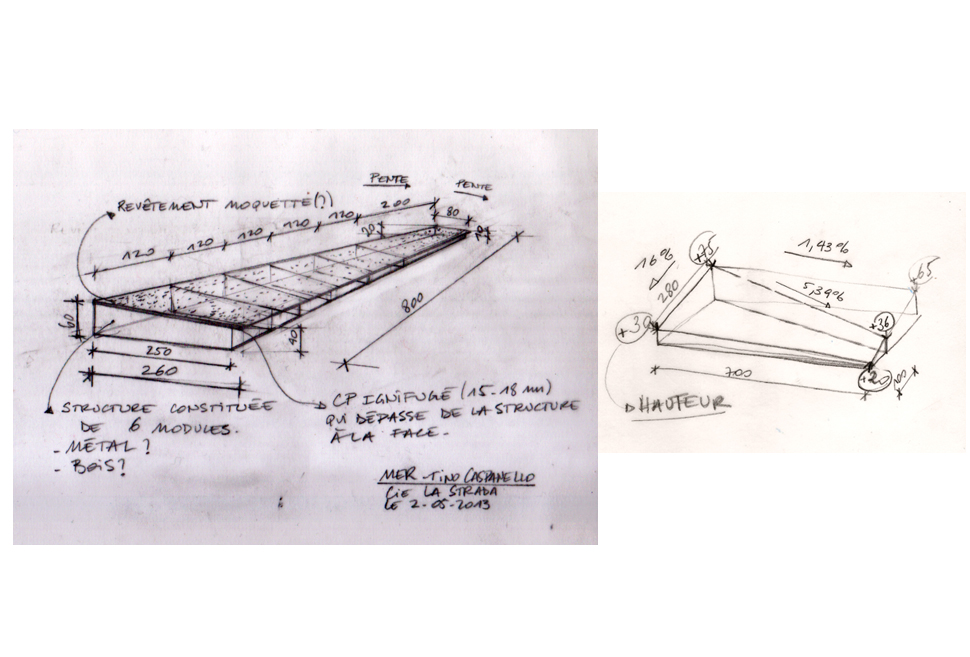 PENTE
PENTE
REVÊTEMENT MOQUETTE(?)
120
120
120
120
120
200
80
20
60
40
800
250
260
STRUCTURE CONSTITUÉE
DE 6 MODULES.
- MÉTAL?
- BOIS?
CP IGNIFUGÉ (15-18 mm)
QUI DÉPASSE DE LA STRUCTURE
À LA FACE.
MER - TINO CASPANELLO
CIE LA STRADA
LE 2-05-2013
16%
+75
1,43%
+65
280
5,34%
+30
+36
700
+20
100
HAUTEUR